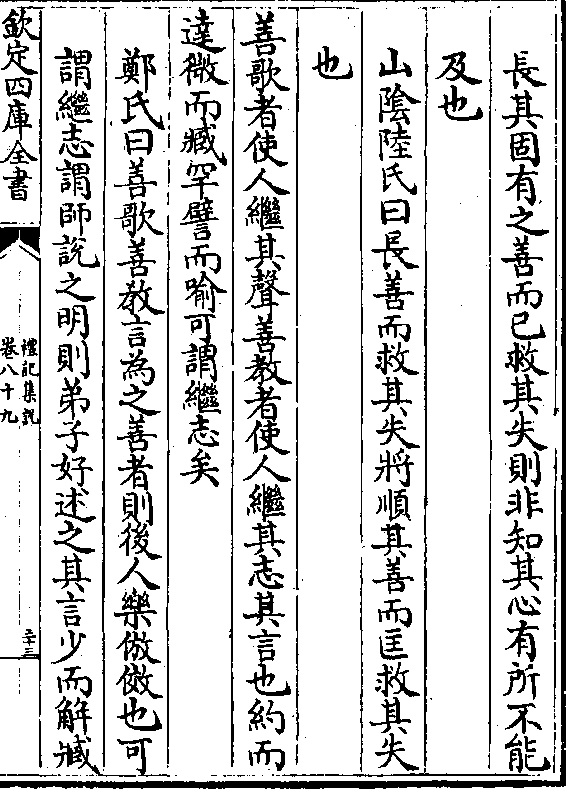 長其固有之善而已救其失則非知其心有所不能
及也
山陰陸氏曰長善而救其失將順其善而匡救其失
也
善歌者使人繼其聲善教者使人繼其志其言也約而
達微而臧罕譬而喻可謂繼志矣
鄭氏曰善歌善教言為之善者則後人樂倣傚也可
謂繼志謂師說之明則弟子好述之其言少而解臧
欽定四庫全書
禮記集說
卷八十九
二十三